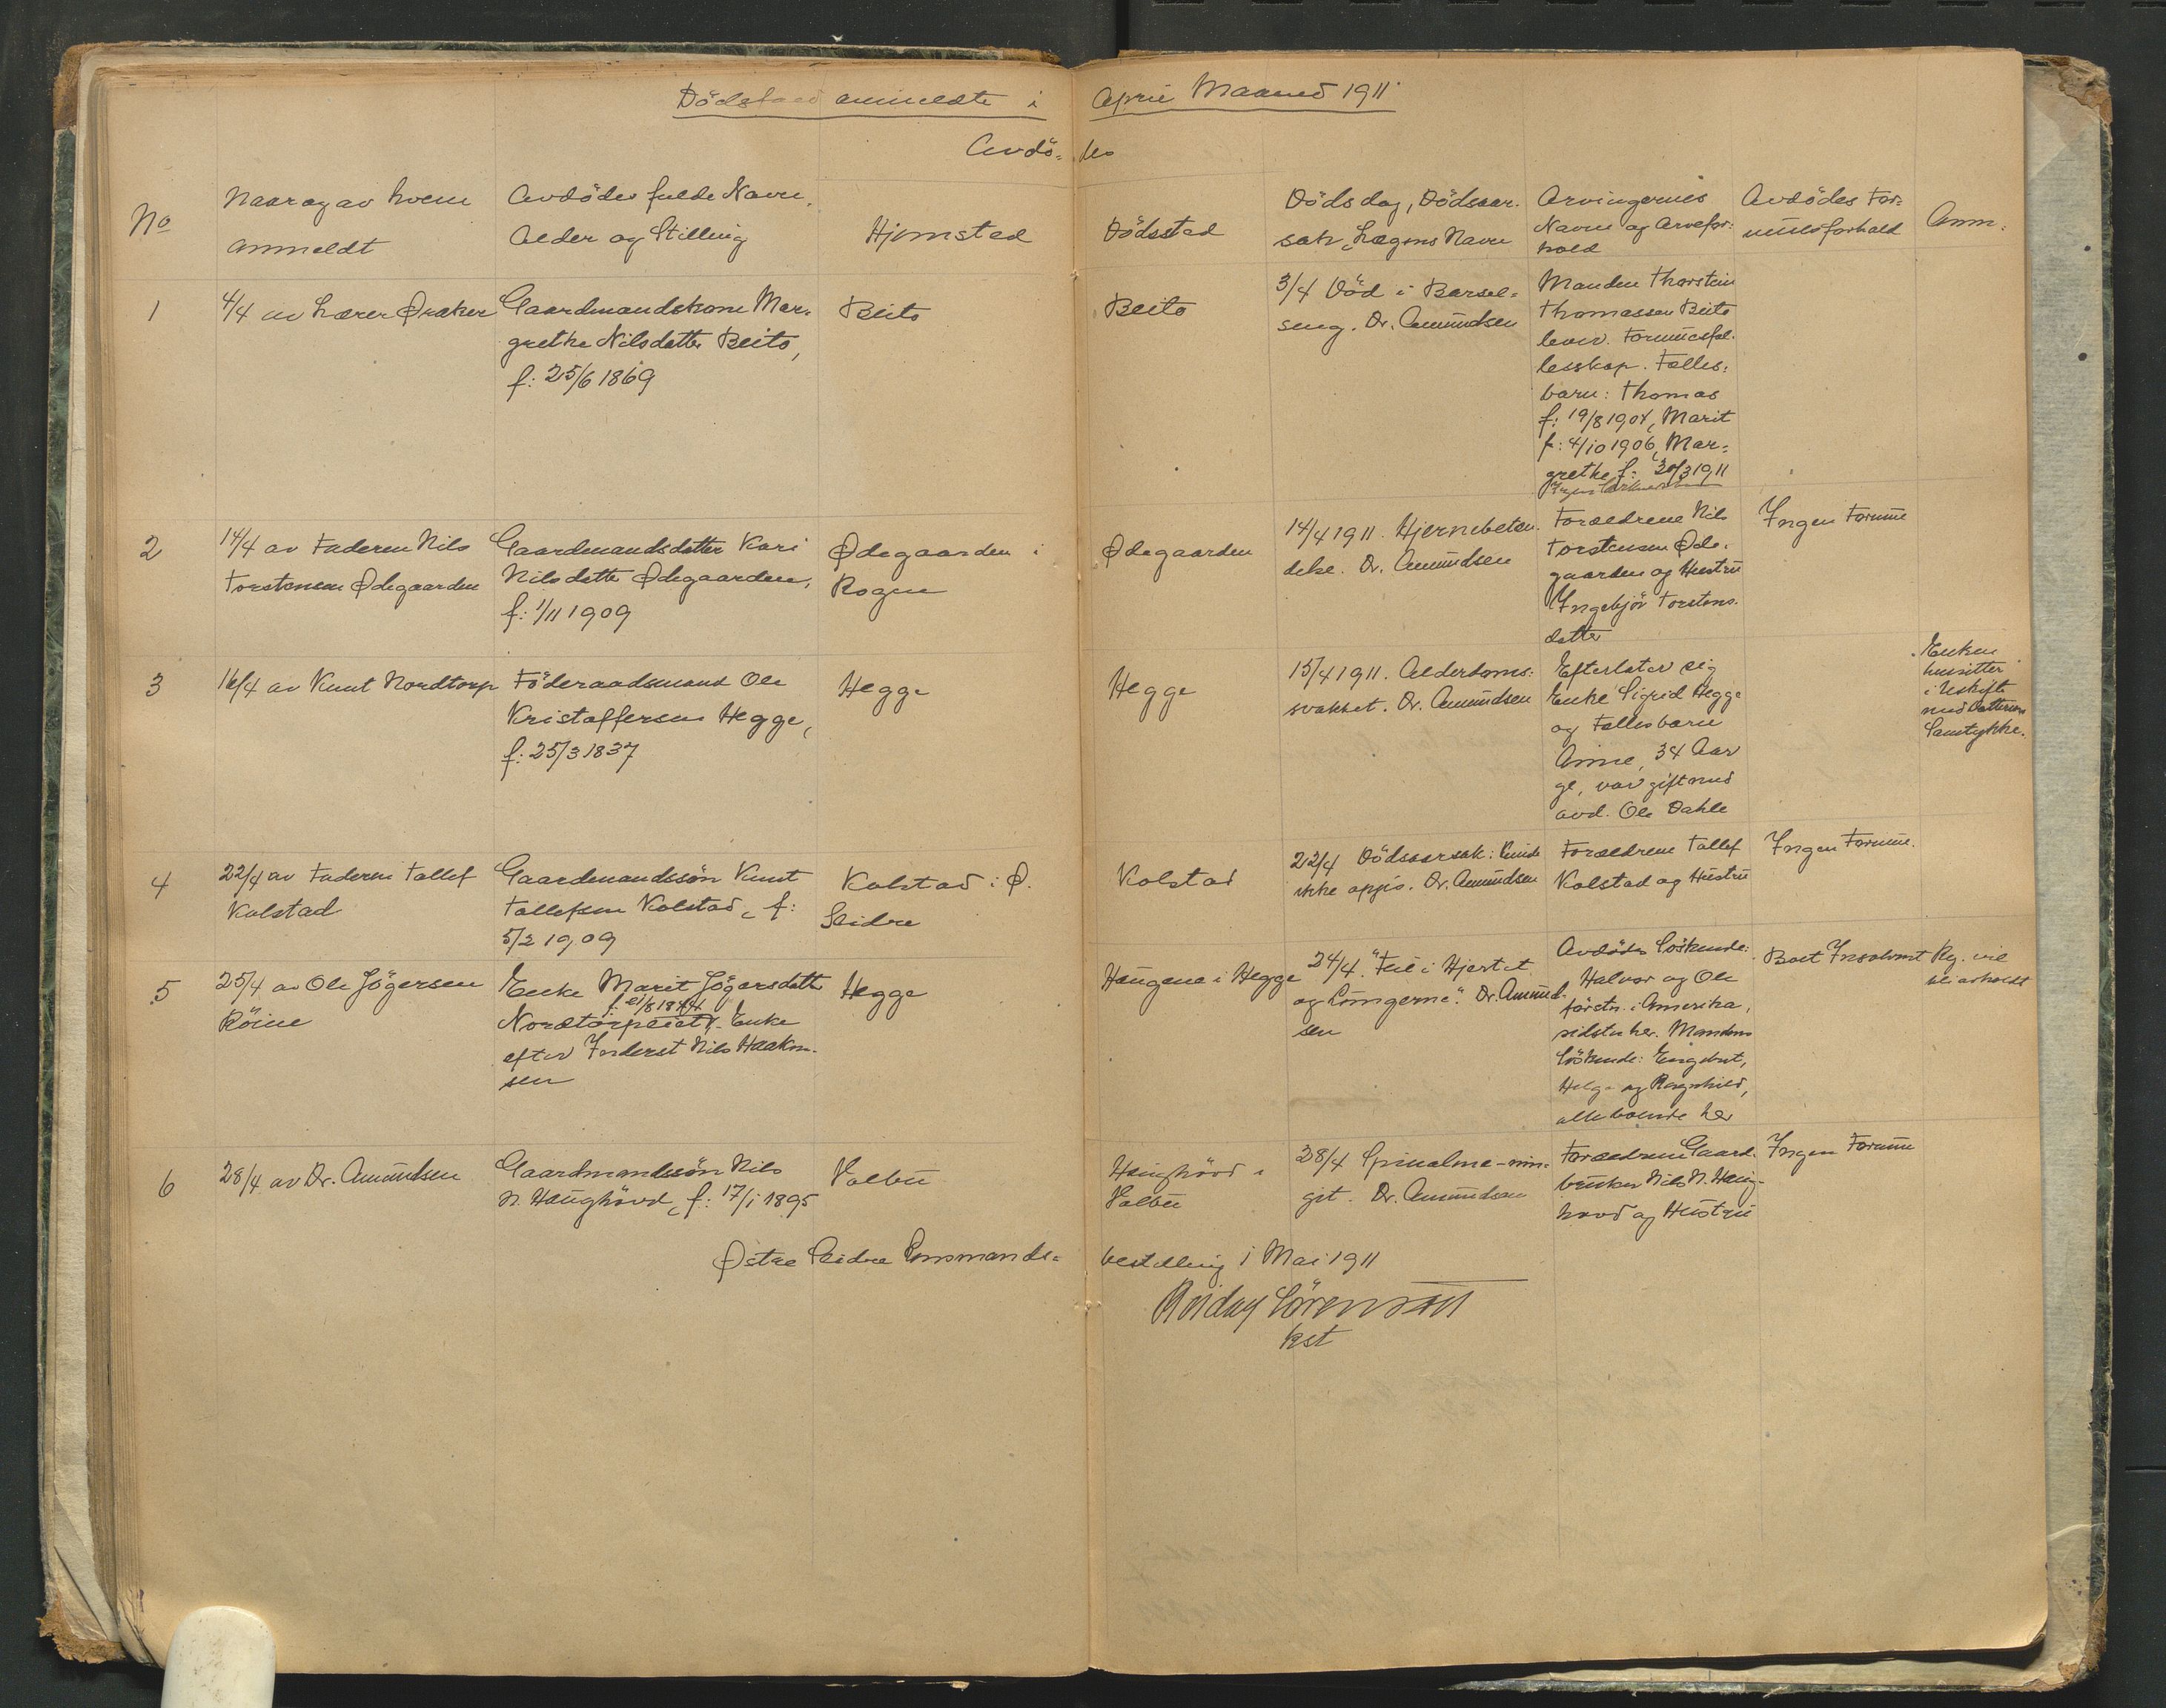 Dödsfald anmeldte i April Maaned 1911
Avdö- des
No
Naar og av hvem
anmeldt
Avdödes fulde Navn,
Alder og Stilling
Hjemsted
Dödssted
Dödsdag, Dödsaar-
sak, Lægens Navn
Arvingernes
Navn og Arvefor-
hold
Avdödes For-
muesforhold
Anm.
1
4/4 av Lærer Øraker
Gaardmandskone Mar-
grethe Nilsdatter Beito,
f: 25/6 1869
Beito
Beito
3/4 Död i Barsel-
seng. Dr. Amundsen
Manden Thorstein
Thomassen Beito
lever. Formuesfæl-
lesskap. Fælles-
barn: Thomas
f: 19/8 1904, Marit
f: 4/10 1906, Mar-
grethe f: 30/3 1911
Ingen
2
14/4 av Faderen Nils
Torstensen Ødegaarden
Gaardmandsdatter Kari
Nilsdatter Ødegaarden,
f: 1/11 1909
Ødegaarden i
Rogne
Ødegaarden
14/4 1911. Hjernebeten-
delse. Dr. Amundsen
Forældrene Nils
Torstensen Øde-
gaarden og Hustru
Ingebjör Torstens-
datter
Ingen Formue
3
16/4 av Knut Nordtorp
Föderaadsmand Ole
Kristoffersen Hegge,
f: 25/3 1837
Hegge
Hegge
15/4 1911. Alderdoms-
svakhet. Dr. Amundsen
Efterlater sig
Enke Sigrid Hegge
og Fællesbarn
Anne, 34 Aar
gl, var gift med
avd. Ole Dahle
Enken
hensitter
i Uskifte
med Datterens
Samtykke.
4
22/4 av Faderen Tollef
Kolstad
Gaardmandssön Knut
Tollefsen Kolstad, f:
5/2 1909
Kolstad i Ø.
Slidre
Kolstad
22/4 Dödsaarsak: Kunde
ikke opgis. Dr. Amundsen
Forældrene Tollef
Kolstad og Hustru
Ingen Formue.
5
25/4 av Ole Jögersen
Röine
Enke Marit Jögersdatter
f. 21/8 1844
Nordtorpeiet, Enke
efter Inderst Nils Haakon-
sen
Hegge
Haugene i Hegge
24/4. "Feil i Hjertet
og Lungerne". Dr. Amund-
sen
Avdödes Söskende:
Halvor og Ole
förstn. i Amerika,
sidstn. her. Mandens
Söskende: Engebret,
Helge og Ragnhild,
alle boende her
Boet Insolvent
Rg. vil
bli avholdt
6
28/4 av Dr. Amundsen
Gaardmandssön Nils
N. Haughövd, f: 17/1 1895
Volbu
Haughövd i
Volbu
28/4 Spinalme-nin-
git. Dr. Amundsen
Forældrene Gaard-
bruker Nils N. Haug-
hövd og Hustru
Ingen Formue
Østre Slidre Lensmands- bestilling 1 Mai 1911
Sörensen
kst